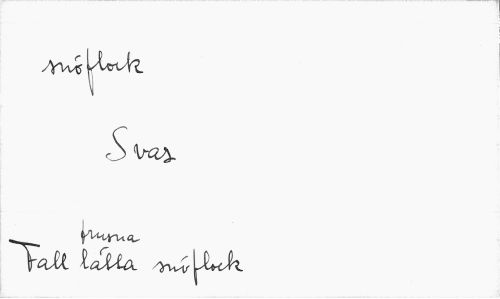 snöflock
Svas
frusna
Fall lätta snöflock